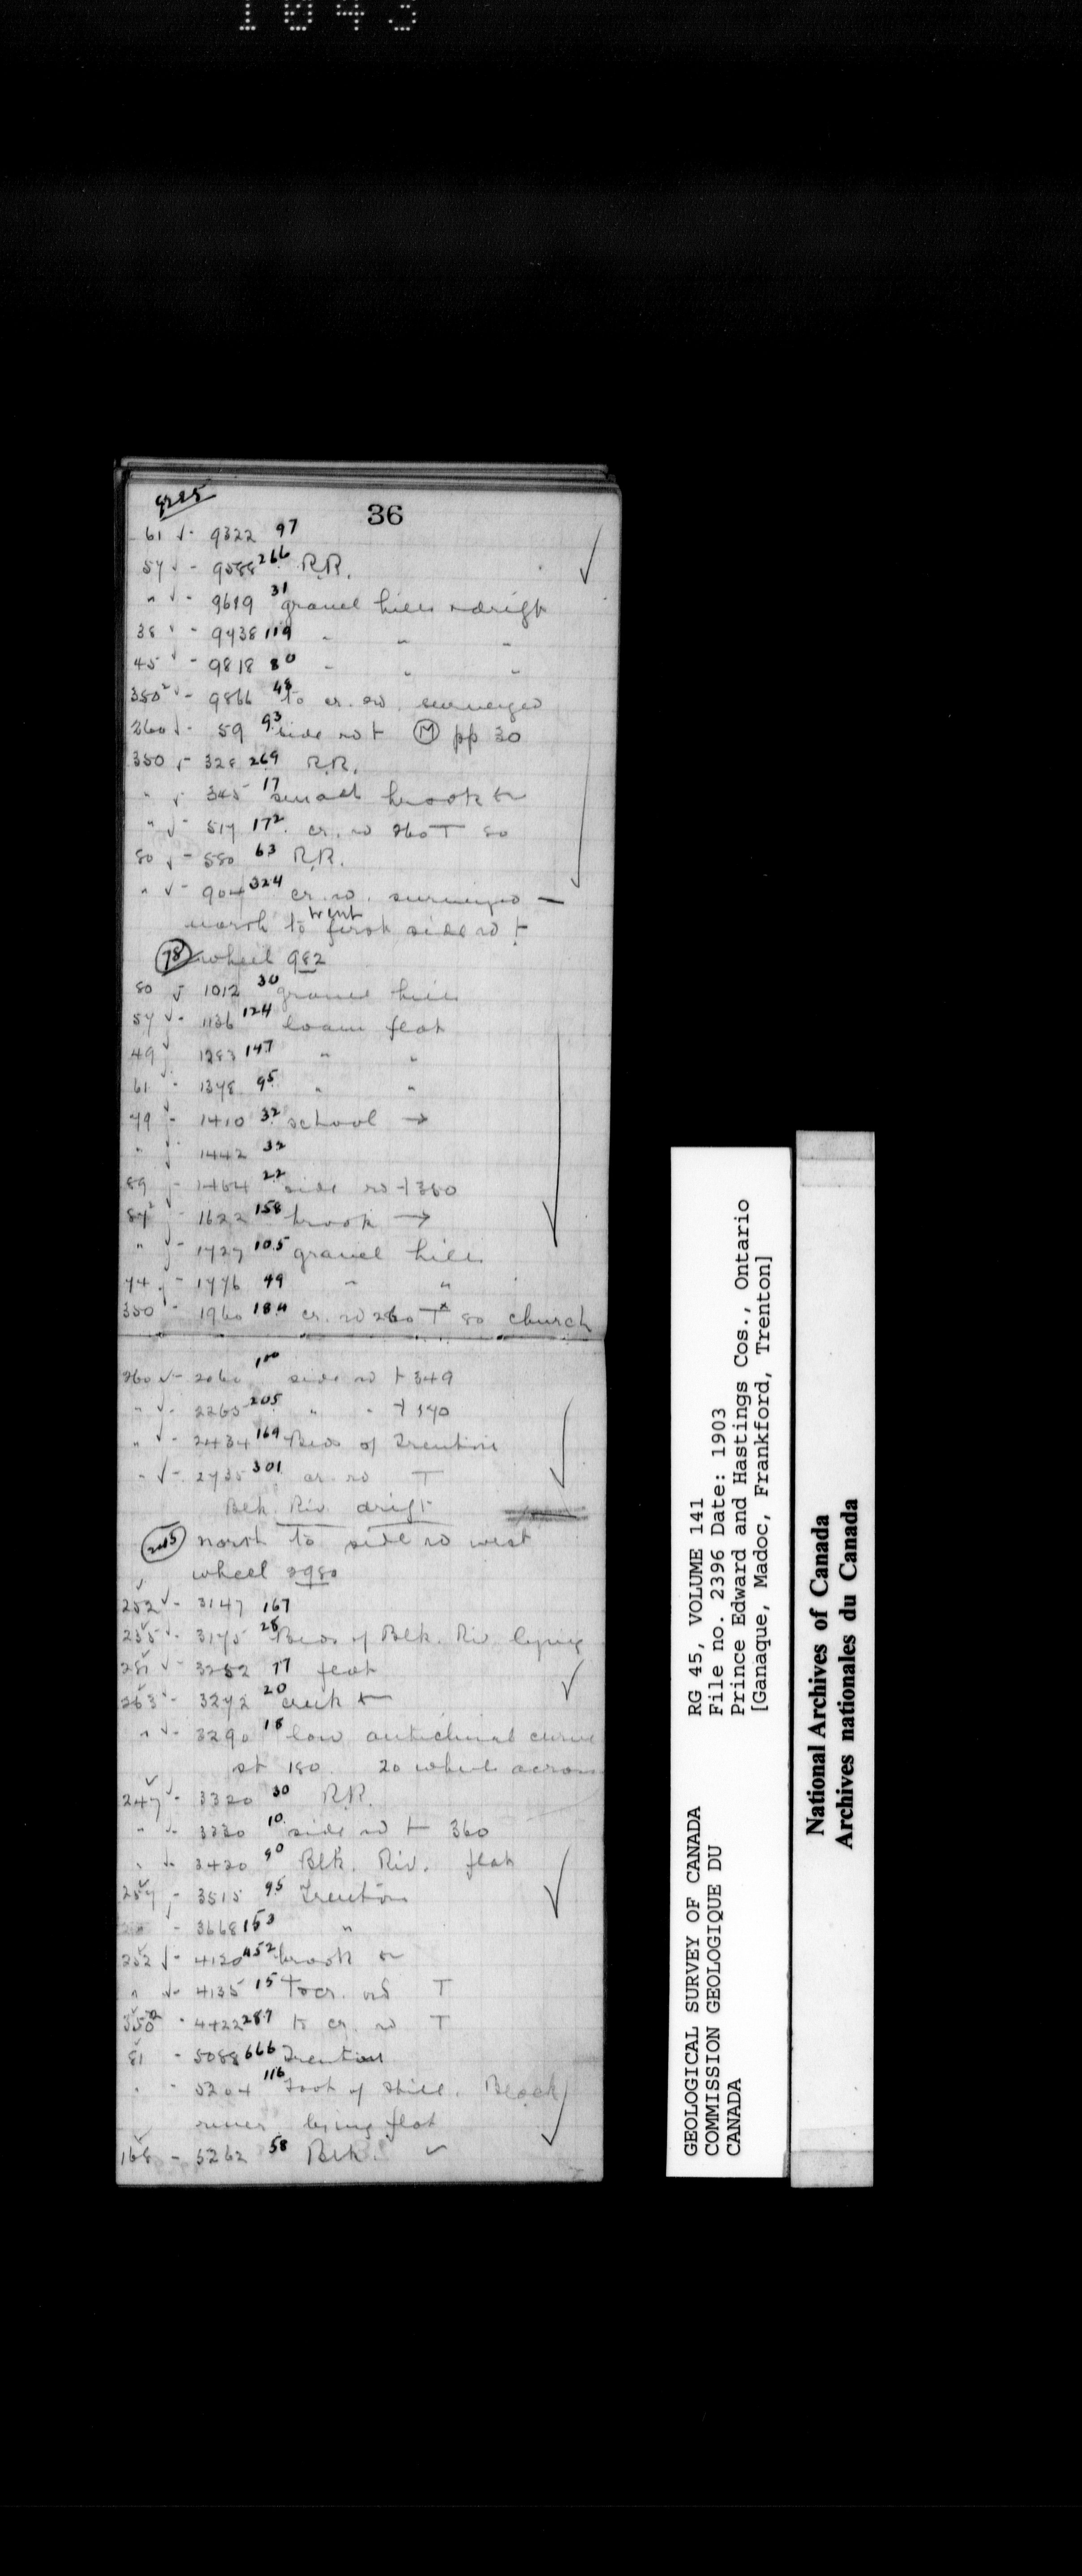 1043
9225
36
61 √ - 9322 97
57 √ - 9588 266 R.R.
" √ - 9619 31 gravel hills & drift
38 √ - 9738 119 " " "
45 √ - 9818 80 " " "
350² √ - 9866 48 to cr. rd. surveyed
260 √ - 59 93 side rd ⊢ Ⓜ pp 30
350 √ - 328 269 R.R.
" √ 345 17 small brook ←
" √ - 517 172 cr. rd 260 T 80
80 √ - 580 63 R.R.
" √ - 904 324 cr. rd. surveyed —
went
north to first side rd ⊢
(78) wheel 982
80 √ 1012 30 gravel hill
57 √ - 1136 124 loam flat
49 √ 1283 147 " "
61 √ - 1378 95 " "
79 √ - 1410 32 school →
" √ 1442 32
89 √ - 1464 22 side rd ⊣ 350
87² √ - 1622 158 brook →
" √ - 1727 105 gravel hills
74 √ - 1776 49 " "
350 √ - 1960 184 cr. rd 260 T x 80 church
260 √ - 2060 100 side rd ⊢ 349
" √ - 2265 205 " " ⊣ 170
" √ - 2434 169 Beds of Trenton
" √ - 2735 301 cr. rd T
Blk. Riv drift
(245) north to side rd west
wheel 2980
252 √ - 3147 167
235 √ - 3175 28 Beds of Blk. Riv lying
281 √ - 3252 77 flat
263 √ - 3272 20 creek ←
" √ - 3290 18 low anticlinal curve
st 180. 20 wheel across
247 √ - 3320 30 R.R.
" √ - 3330 10 side rd ⊢ 360
" √ - 3420 90 Blk. Riv. flat
257 √ - 3515 95 Trenton
" - 3668 153 "
252 √ - 4120 452 brook ←
" √ - 4135 15 to cr. rd T
350² - 4422 287 to cr. rd T
81 - 5088 666 Trenton
" - 5204 116 Foot of hill. Black
river lying flat
168 - 5262 58 Blk. √
GEOLOGICAL SURVEY OF CANADA
COMMISSION GEOLOGIQUE DU
CANADA
RG 45, VOLUME 141
File no. 2396 Date: 1903
Prince Edward and Hastings Cos., Ontario
[Ganaque, Madoc, Frankford, Trenton]
National Archives of Canada
Archives nationales du Canada